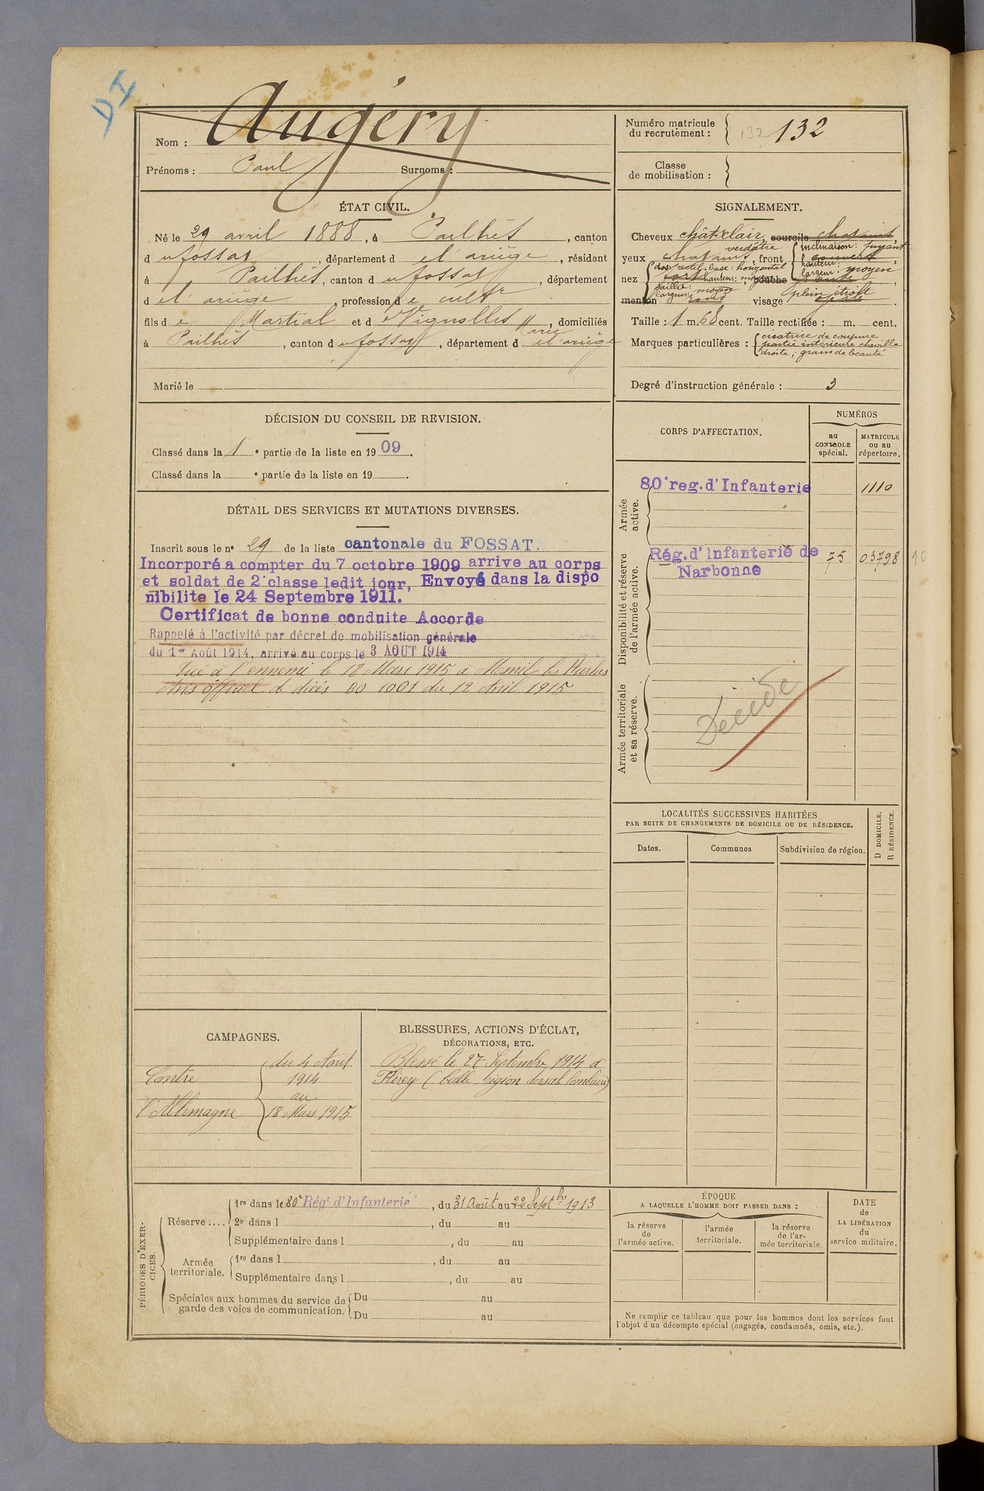 DI
Nom : Augéry
Prénoms : Paul Surnoms :
Numéro matricule du recrutement : 132 132
Classe de mobilisation :
ÉTAT CIVIL.
Né le 29 avril 1888, à Pailhès, canton
d u fossat, département d e l'ariège, résidant
à Pailhès, canton d u fossat, département
d e l'ariège, profession d e cultr
fils d e Martial et d e Vignolles Marie, domiciliés
à Pailhès, canton d u fossat, département d e l'ariège
Marié le
SIGNALEMENT.
Cheveux chât. clair sourcils chatains
yeux chatains verdâtre, front couvert inclinaison: fuyant hauteur: largeur: moyen
nez fort dos rectil. base: horizontal hauteur: saillie: largeur: bouche grande
menton rond visage ovale plein étroit
Taille : 1 m. 68 cent. Taille rectifiée : m. cent.
Marques particulières : cicatrice de coupure
partie intérieure cheville
droite ; grain de beauté
Degré d'instruction générale : 3
DÉCISION DU CONSEIL DE REVISION.
Classé dans la 1e partie de la liste en 1909.
Classé dans la e partie de la liste en 19 .
CORPS D'AFFECTATION.
NUMÉROS
au CONTROLE spécial.
MATRICULE ou au répertoire.
Armée active.
80e reg. d'Infanterie 1110
Disponibilité et réserve de l'armée active.
Rég. d'Infanterie de Narbonne 75 03798 10
Armée territoriale et sa réserve.
Décédé
DÉTAIL DES SERVICES ET MUTATIONS DIVERSES.
Inscrit sous le n° 29 de la liste cantonale du FOSSAT.
Incorporé a compter du 7 octobre 1909 arrive au corps
et soldat de 2e classe ledit jour, Envoyé dans la dispo
nibilite le 24 Septembre 1911.
Certificat de bonne conduite Accorde
Rappelé à l'activité par décret de mobilisation générale
du 1er Août 1914, arrivé au corps le 3 AOUT 1914
Tué à l'ennemi le 18 Mars 1915 à Mesnil les Hurlus
avis officiel de décès no 1001 du 12 Avril 1915
LOCALITÉS SUCCESSIVES HABITÉES
PAR SUITE DE CHANGEMENTS DE DOMICILE OU DE RÉSIDENCE.
Dates. Communes Subdivision de région.
D DOMICILE.
R RÉSIDENCE.
CAMPAGNES.
Contre l'Allemagne
du 4 Août
1914
au
18 Mars 1915
BLESSURES, ACTIONS D'ÉCLAT,
DÉCORATIONS, ETC.
Blessé le 27 Septembre 1914 à
Flirey (balle région dorsale lombaire)
PÉRIODES D'EXERCICES.
Réserve....
1re dans le 80e Régt d'Infanterie, du 31 Août au 22 Septbre 1913
2e dans l , du au
Supplémentaire dans l , du au
Armée territoriale.
1re dans l , du au
Supplémentaire dans l , du au
Spéciales aux hommes du service de
garde des voies de communication.
Du au
Du au
ÉPOQUE
A LAQUELLE L'HOMME DOIT PASSER DANS :
la réserve de l'armée active.
l'armée territoriale.
la réserve de l'armée territoriale.
DATE
de
LA LIBÉRATION
du
service militaire.
Ne remplir ce tableau que pour les hommes dont les services font
l'objet d'un décompte spécial (engagés, condamnés, omis, etc.).